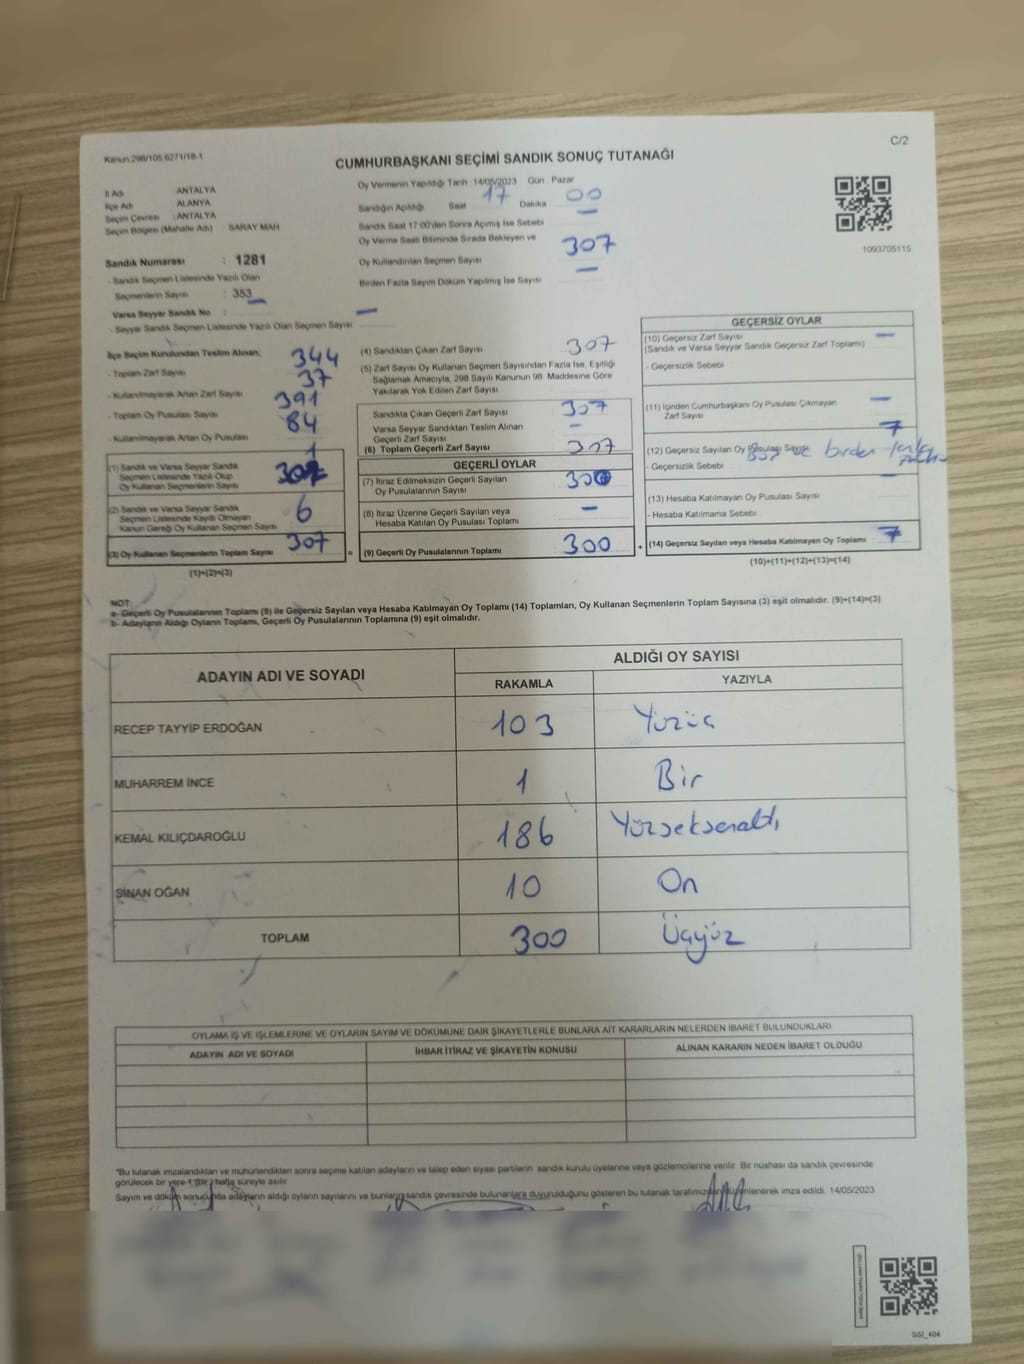 Kanun:298/105,6271/18-1
C/2
CUMHURBAŞKANI SEÇİMİ SANDIK SONUÇ TUTANAĞI
İl Adı ANTALYA
İlçe Adı ALANYA
Seçim Çevresi : ANTALYA
Seçim Bölgesi (Mahalle Adı) SARAY MAH
Sandık Numarası : 1281
- Sandık Seçmen Listesinde Yazılı Olan
Seçmenlerin Sayısı : 353
Varsa Seyyar Sandık No : -
- Seyyar Sandık Seçmen Listesinde Yazılı Olan Seçmen Sayısı
Oy Vermenin Yapıldığı Tarih : 14/05/2023 Gün Pazar
Sandığın Açıldığı Saat 17 Dakika 00
Sandık Saat 17:00'den Sonra Açmış İse Sebebi -
Oy Verme Saati Bitiminde Sırada Bekleyen ve
Oy Kullandırılan Seçmen Sayısı 307
Birden Fazla Sayım Döküm Yapılmış İse Sayısı -
1093705115
İlçe Seçim Kurulundan Teslim Alınan;
- Toplam Zarf Sayısı 344
- Kullanılmayarak Artan Zarf Sayısı 37
- Toplam Oy Pusulası Sayısı 391
- Kullanılmayarak Artan Oy Pusulası 84
(1) Sandık ve Varsa Seyyar Sandık
Seçmen Listesinde Yazılı Olup
Oy Kullanan Seçmenlerin Sayısı
(2) Sandık ve Varsa Seyyar Sandık
Seçmen Listesinde Kayıtlı Olmayan
Kanun Gereği Oy Kullanan Seçmen Sayısı 6
(3) Oy Kullanan Seçmenlerin Toplam Sayısı 307
(1)+(2)=(3)
(4) Sandıktan Çıkan Zarf Sayısı 307
(5) Zarf Sayısı Oy Kullanan Seçmen Sayısından Fazla İse, Eşitliği
Sağlamak Amacıyla, 298 Sayılı Kanunun 98. Maddesine Göre
Yakılarak Yok Edilen Zarf Sayısı
Sandıkta Çıkan Geçerli Zarf Sayısı 307
Varsa Seyyar Sandıktan Teslim Alınan
Geçerli Zarf Sayısı -
(6) Toplam Geçerli Zarf Sayısı 307
GEÇERLİ OYLAR
(7) İtiraz Edilmeksizin Geçerli Sayılan
Oy Pusulalarının Sayısı 300
(8) İtiraz Üzerine Geçerli Sayılan veya
Hesaba Katılan Oy Pusulası Toplamı -
= (9) Geçerli Oy Pusulalarının Toplamı 300
GEÇERSİZ OYLAR
(10) Geçersiz Zarf Sayısı -
(Sandık ve Varsa Seyyar Sandık Geçersiz Zarf Toplamı)
- Geçersizlik Sebebi
(11) İçinden Cumhurbaşkanı Oy Pusulası Çıkmayan
Zarf Sayısı -
(12) Geçersiz Sayılan Oy Pusulası Sayısı 7
- Geçersizlik Sebebi
(13) Hesaba Katılmayan Oy Pusulası Sayısı
- Hesaba Katılmama Sebebi
+ (14) Geçersiz Sayılan veya Hesaba Katılmayan Oy Toplamı 7
(10)+(11)+(12)+(13)=(14)
NOT:
a- Geçerli Oy Pusulalarının Toplamı (9) ile Geçersiz Sayılan veya Hesaba Katılmayan Oy Toplamı (14) Toplamları, Oy Kullanan Seçmenlerin Toplam Sayısına (3) eşit olmalıdır. (9)+(14)=(3)
b- Adayların Aldığı Oyların Toplamı, Geçerli Oy Pusulalarının Toplamına (9) eşit olmalıdır.
ADAYIN ADI VE SOYADI ALDIĞI OY SAYISI
RAKAMLA YAZIYLA
RECEP TAYYİP ERDOĞAN 103 Yüzüç
MUHARREM İNCE 1 Bir
KEMAL KILIÇDAROĞLU 186 Yüzseksenaltı
SİNAN OĞAN 10 On
TOPLAM 300 Üçyüz
OYLAMA İŞ VE İŞLEMLERİNE VE OYLARIN SAYIM VE DÖKÜMÜNE DAİR ŞİKAYETLERLE BUNLARA AİT KARARLARIN NELERDEN İBARET BULUNDUKLARI
ADAYIN ADI VE SOYADI İHBAR İTİRAZ VE ŞİKAYETİN KONUSU ALINAN KARARIN NEDEN İBARET OLDUĞU
*Bu tutanak imzalandıktan ve mühürlendikten sonra seçime katılan adayların ve talep eden siyasi partilerin sandık kurulu üyelerine veya gözlemcilerine verilir. Bir nüshası da sandık çevresinde
görülecek bir yere 1 (bir) hafta süreyle asılır.
Sayım ve döküm sonucunda adayların aldığı oyların sayılarını ve bunların sandık çevresinde bulunanlara duyurulduğunu gösteren bu tutanak tarafımızdan düzenlenerek imza edildi. 14/05/2023
SSİ_404